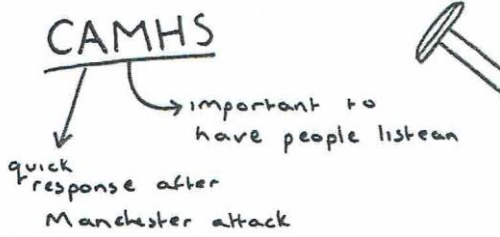 CAMHS
important to
have people listean
quick
response after
Manchester attack